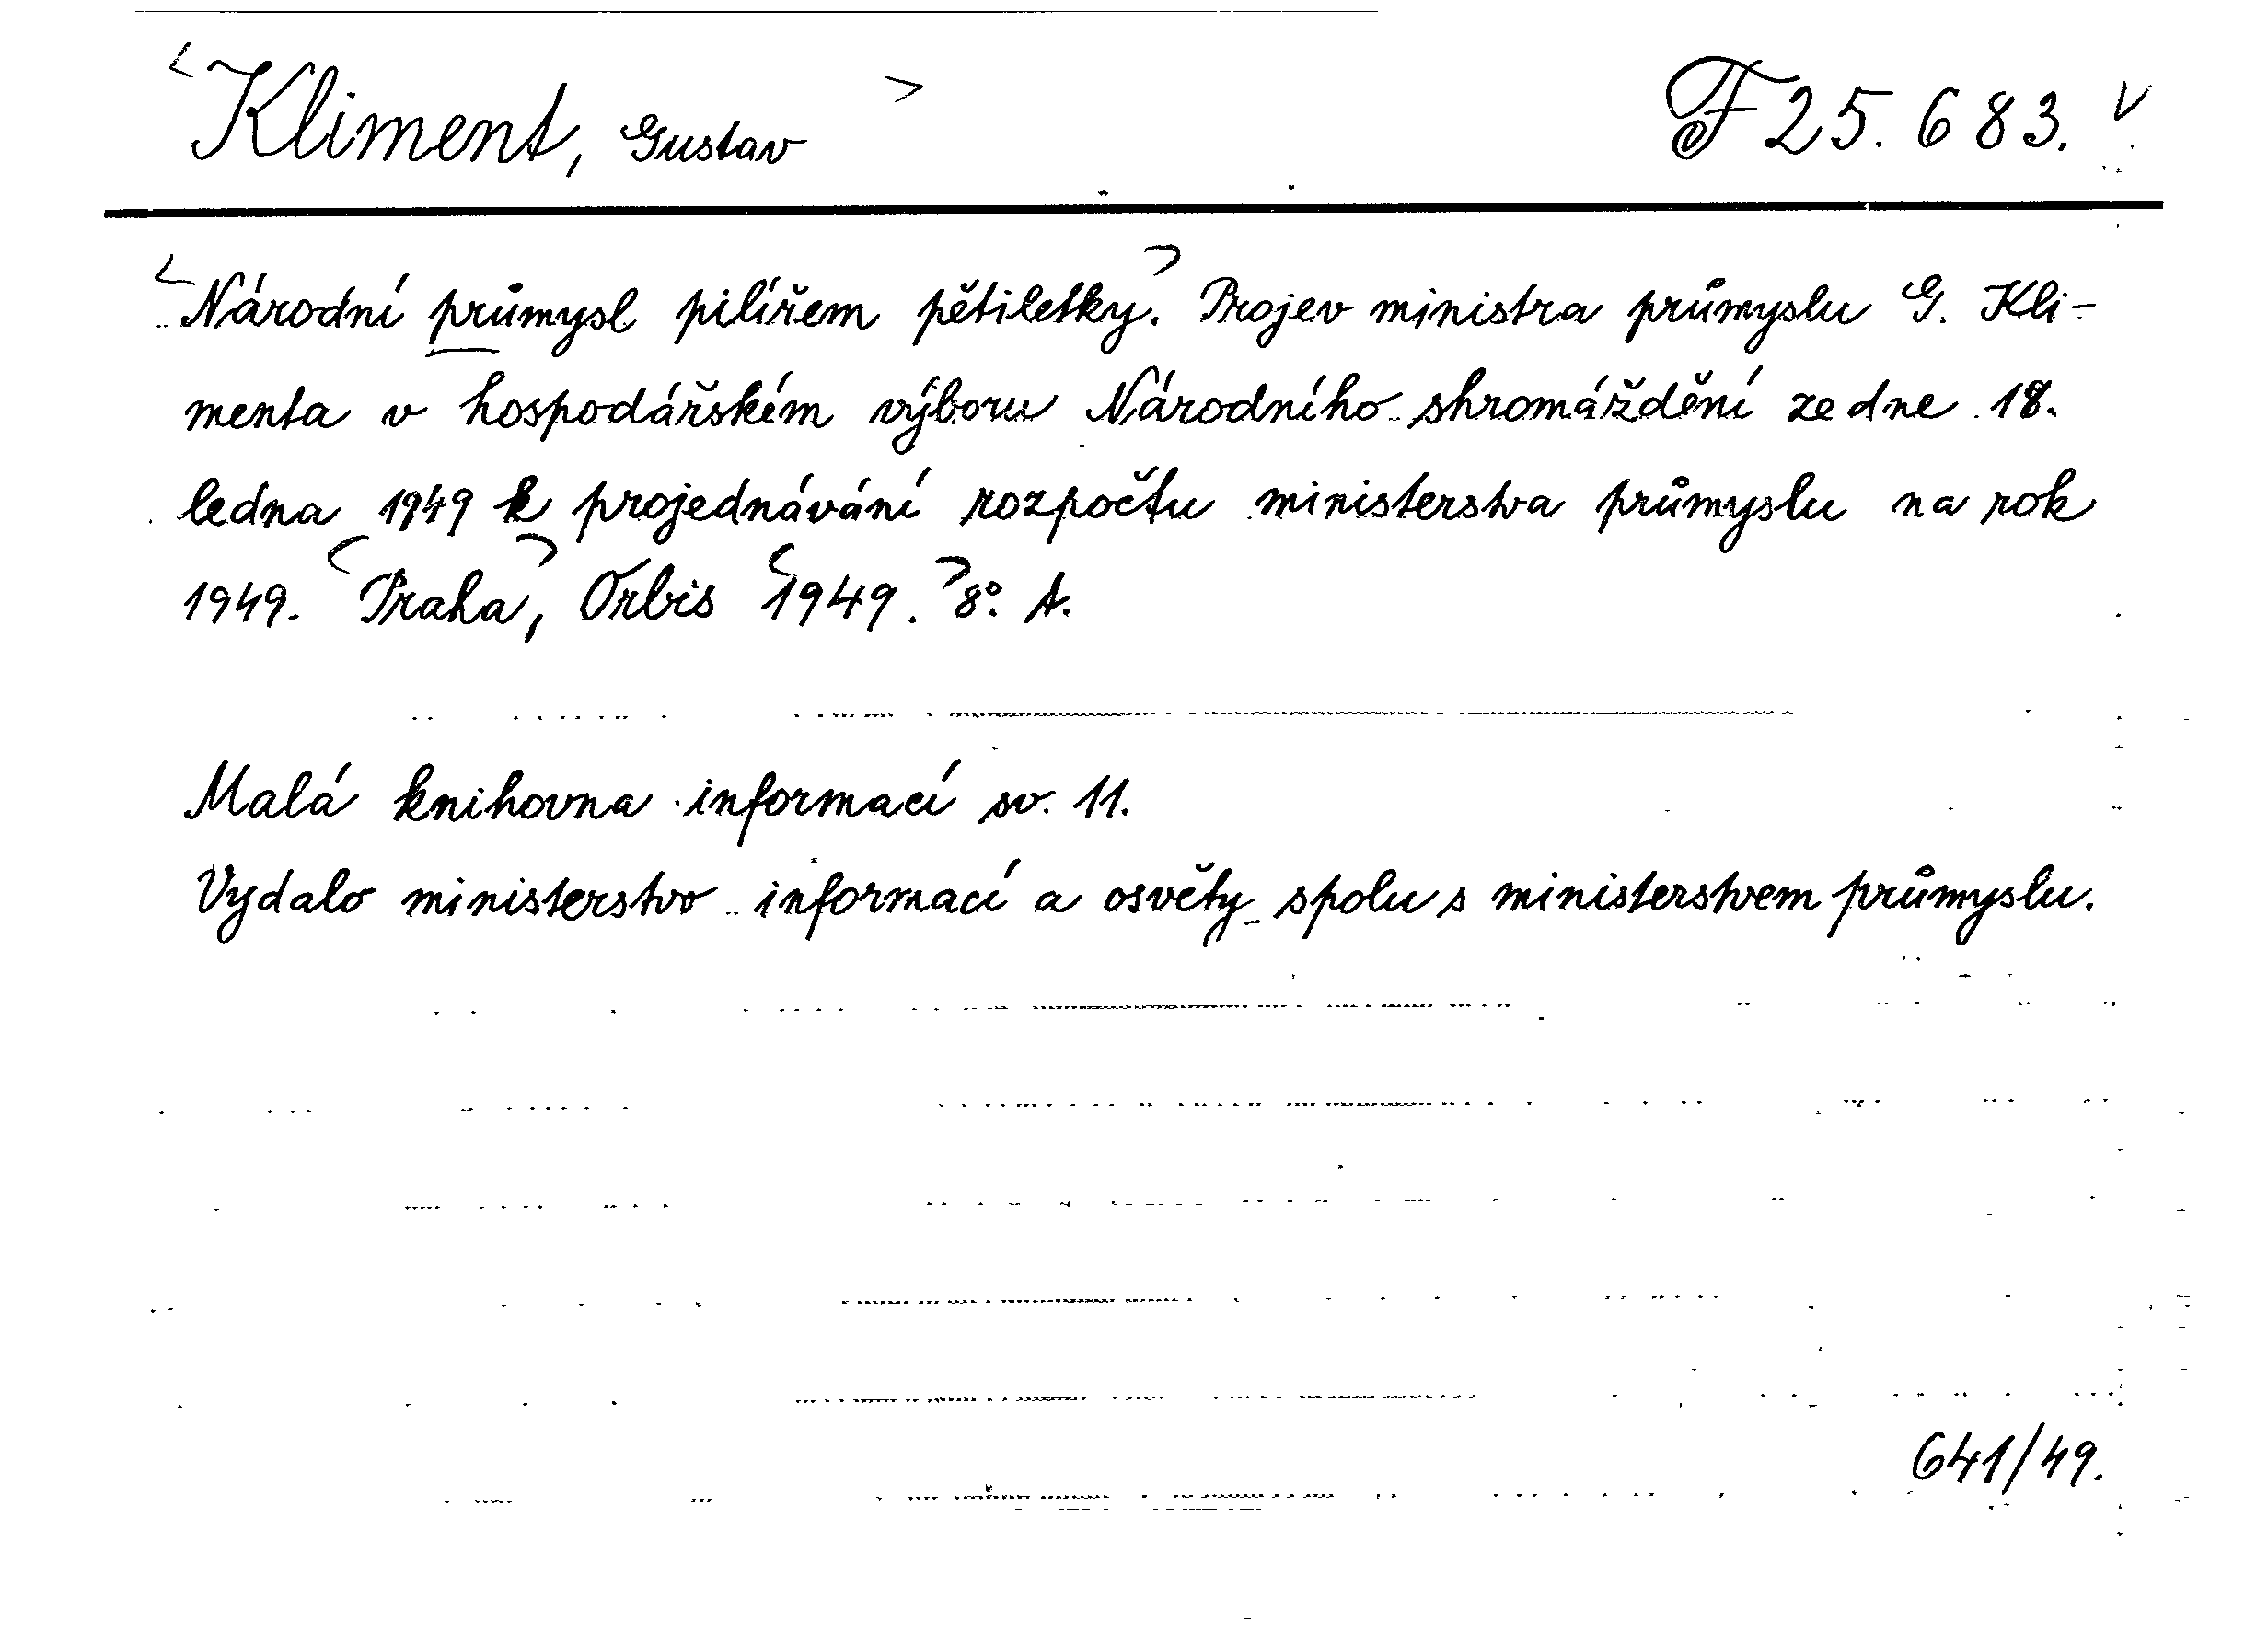 <Kliment, Gustav> F 25.683. v
<Národní průmysl pilířem pětiletky.> Projev ministra průmyslu G. Kli-
menta v hospodářském výboru Národního shromáždění ze dne 18.
ledna 1949 k projednávání rozpočtu ministerstva průmyslu na rok
1949. <Praha>, Orbis <1949.> 8°. A.
Malá knihovna informací sv. 11.
Vydalo ministerstvo informací a osvěty spolu s ministerstvem průmyslu.
641/49.